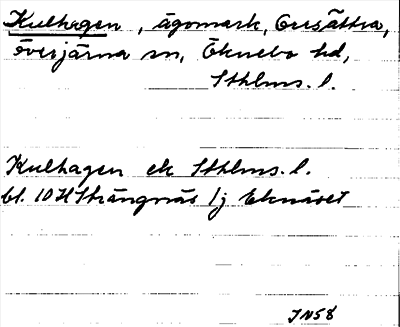 Kulhagen, ägomark, Eresättra,
Överjärna sn, Öknebo hd,
Sthlms. l.
Kulhagen ek Sthlms. l.
bl. 10H Strängnäs 1j Eknäset
JN58